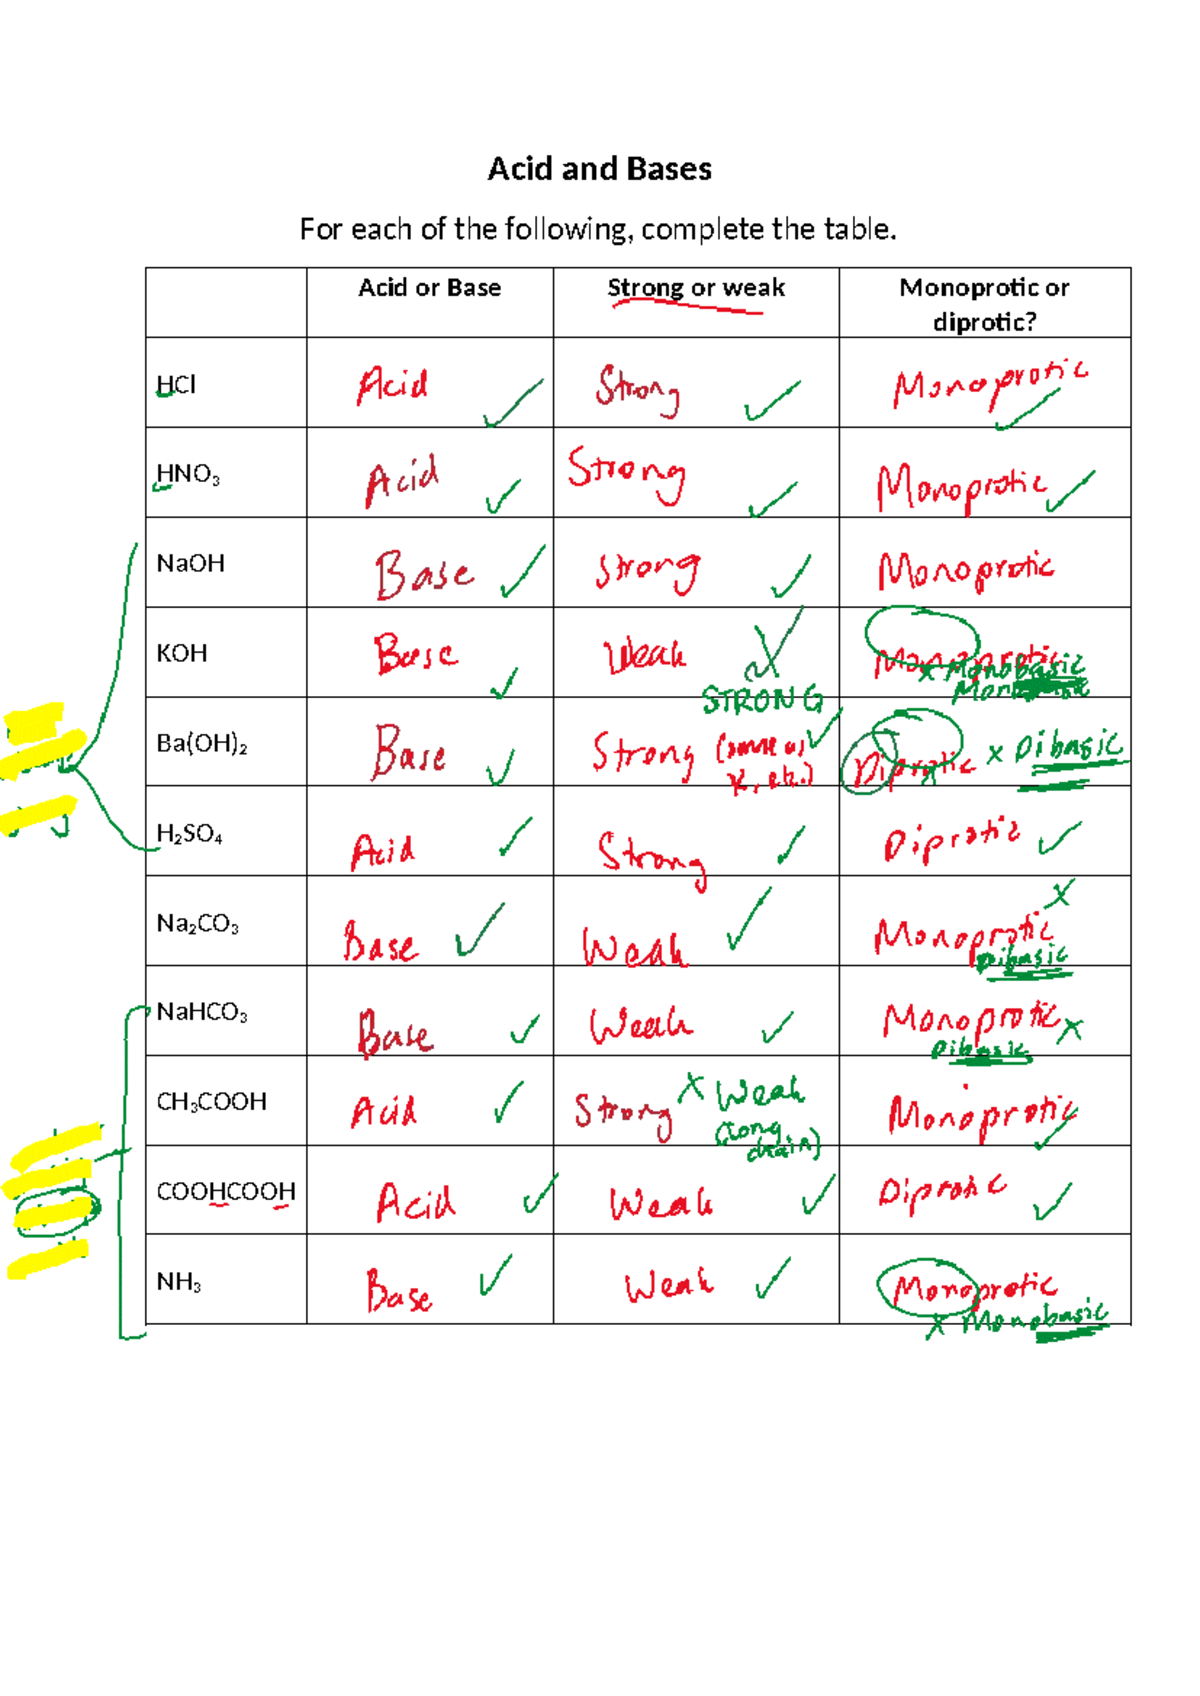 Acid and Bases
For each of the following, complete the table.
Acid or Base Strong or weak Monoprotic or
diprotic?
HCl Acid Strong Monoprotic
HNO₃ Acid Strong Monoprotic
NaOH Base Strong Monoprotic
KOH Base Weak Monoprotic
x Monobasic
STRONG
Ba(OH)₂ Base Strong (same as Diprotic x Dibasic
K, etc.)
H₂SO₄ Acid Strong Diprotic
Na₂CO₃ Base Weak Monoprotic x
Dibasic
NaHCO₃ Base Weak Monoprotic x
Dibasic
CH₃COOH Acid Strong x Weak Monoprotic
(long
chain)
COOHCOOH Acid Weak Diprotic
NH₃ Base Weak Monoprotic
x Monobasic